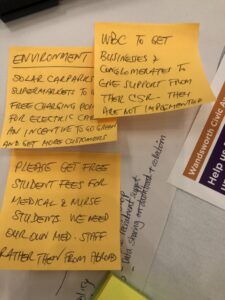 ENVIRONMENT
SOLAR CARPARKS
SUPERMARKETS TO
FREE CHARGING POINTS
FOR ELECTRIC CARS
AN INCENTIVE TO GO GREEN
AND GET MORE CUSTOMERS
WBC TO GET
BUSINESSES &
CONGLOMERATES TO
GIVE SUPPORT FROM
THEIR CSR. THEY
ARE NOT IMPLEMENTING
PLEASE GET FREE
STUDENT FEES FOR
MEDICAL & NURSE
STUDENTS. WE NEED
OUR OWN MED. STAFF
RATHER THAN FROM ABROAD
Wandsworth Civic
Help us
support
data sharing